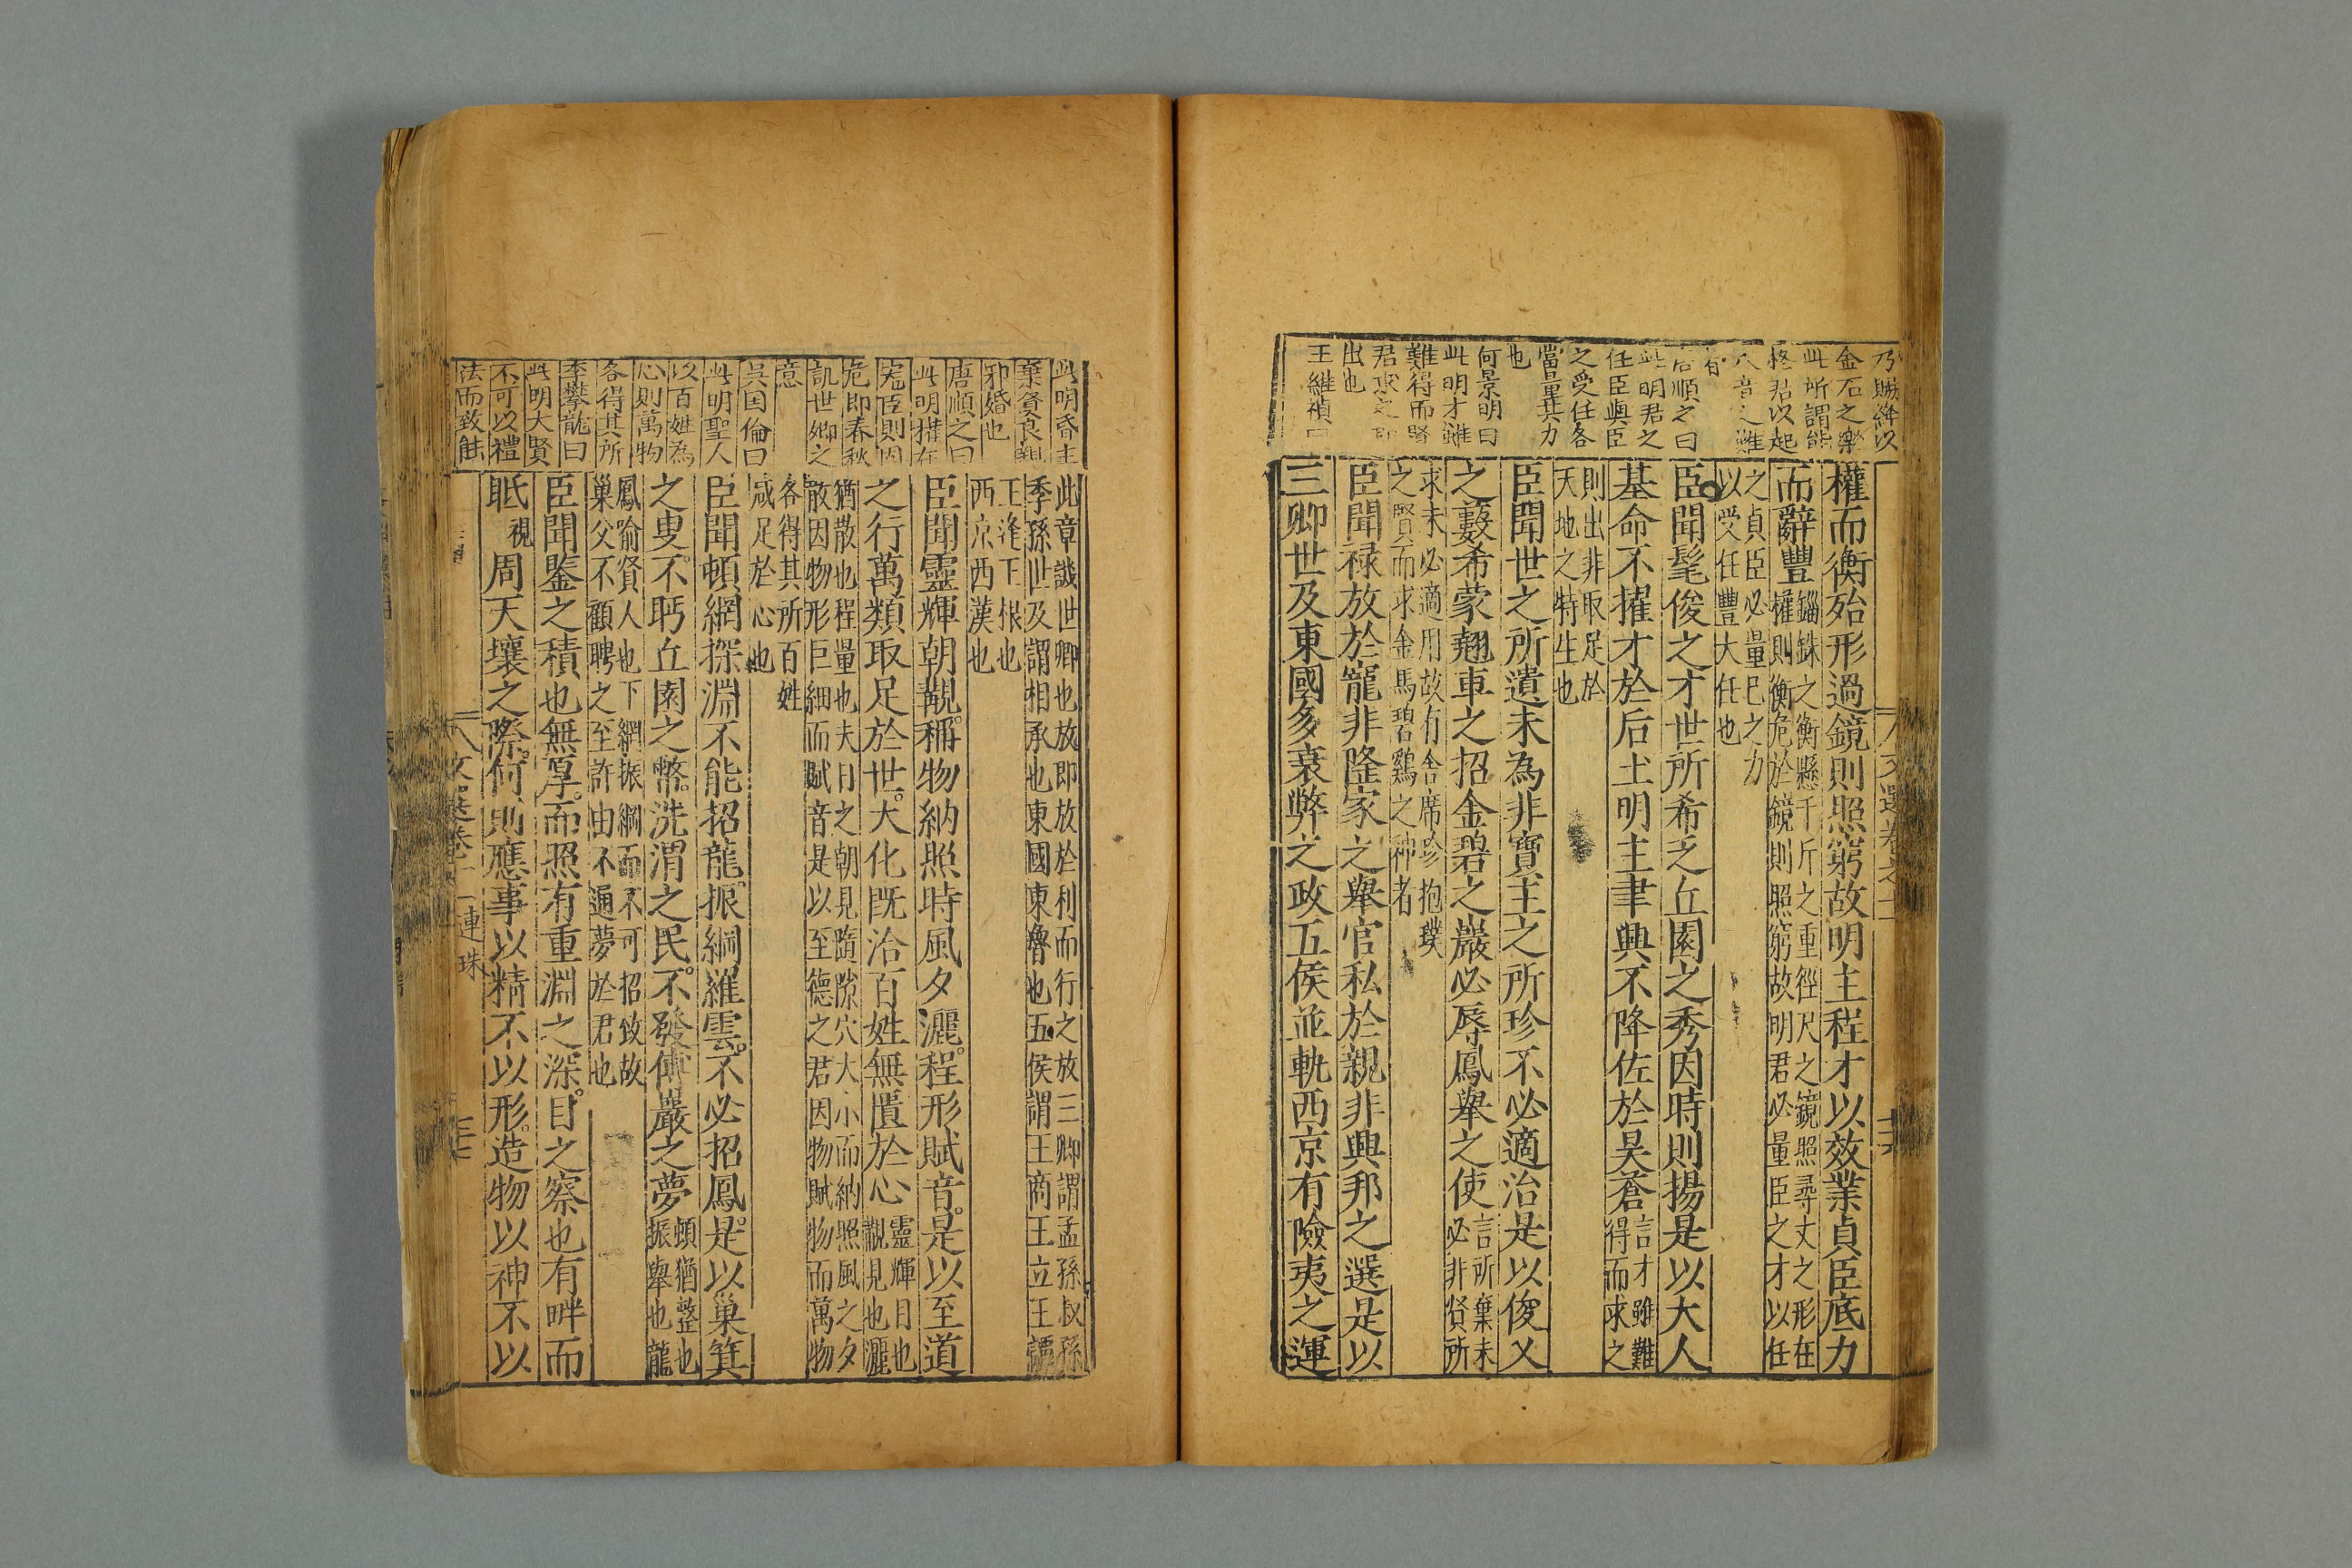 乃賜絳以
金石之樂
此所謂能
格君以起
八音之難
者
唐順之曰
此明君之
任臣與臣
之受任各
當量其力
也
何景明曰
此明才雖
難得而賢
君求之
出也
王維楨曰
權而衡殆形過鏡則照窮故明主程才以效業貞臣底力
而辭豐
錙銖之衡懸千斤之重徑尺之鏡照尋丈之形在
權則衡危於鏡則照窮故明君必量臣之才以任
之貞臣必量已之力
以受任豐大任也
臣聞髦俊之才世所希乏丘園之秀因時則揚是以大人
基命不擢才於后土明主聿興不降佐於昊蒼
言才雖難
得而求之
則出非取足於
天地之特生也
臣聞世之所遺未為非寶主之所珍不必適治是以俊乂
之藪希蒙翹車之招金碧之巖必辱鳳舉之使
言所棄未
必非賢所
求未必適用故有舍席珍抱璞
之賢而求金馬碧鷄之神者
臣聞祿放於寵非隆家之舉官私於親非興邦之選是以
三卿世及東國多衰弊之政五侯並軌西京有險夷之運
文選卷之十
此明昏主
棄賢良親
邪婚也
唐順之曰
此明權在
寃臣則國
危即春秋
訊世卿之
意
吳国倫曰
此明聖人
以百姓為
心則萬物
各得其所
李攀龍曰
此明大賢
不可以禮
法而致能
此章譏世卿也放即放於利而行之放三卿謂孟孫叔孫
季孫世及謂相承也東國東魯也五侯謂王商王立王譚
王逢王根也
西京西漢也
臣聞靈輝朝覯稱物納照時風夕灑程形賦音是以至道
之行萬類取足於世大化既洽百姓無匱於心
靈輝日也
覯見也灑
猶散也程量也夫日之朝見隨隙穴大小而納照風之夕
散因物形巨細而賦音是以至德之君因物賦物而萬物
各得其所百姓
咸足於心也
臣聞頓網探淵不能招龍振綱羅雲不必招鳳是以巢箕
之叟不眄丘園之幣洗渭之民不發傅巖之夢
頓猶整也
振舉也龍
鳳喻賢人也下網振綱而不可招致故
巢父不顧聘之至許由不通夢於君也
臣聞鑒之積也無厚而照有重淵之深目之察也有畔而
眡
視
周天壤之際何則應事以精不以形造物以神不以
文選卷十
連珠